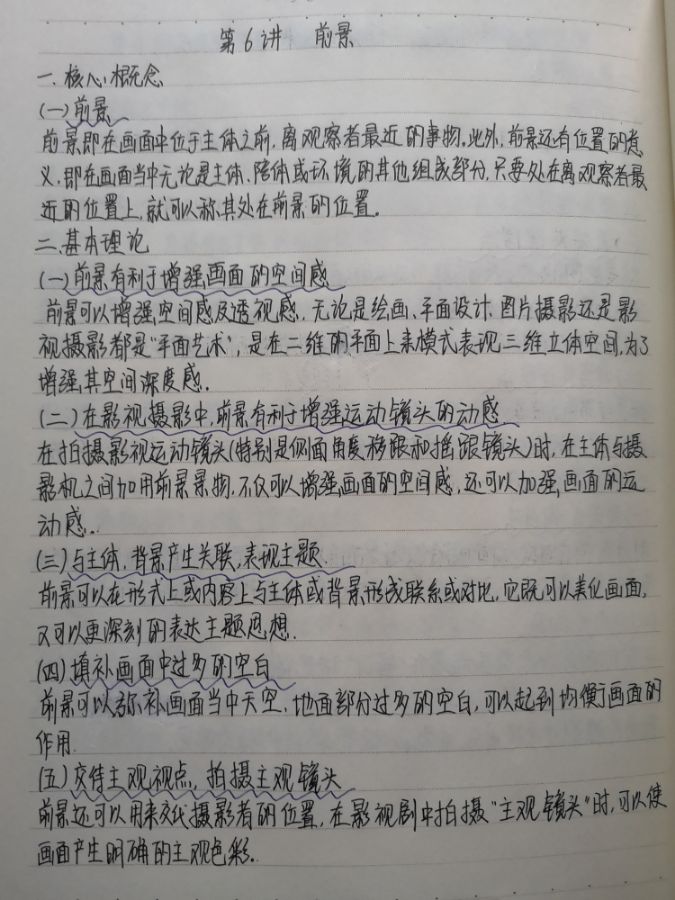 第6讲 前景
一、核心概念
(一)前景
前景即在画面中位于主体之前,离观察者最近的事物,此外,前景还有位置的意
义,即在画面当中无论是主体、陪体或环境的其他组成部分,只要处在离观察者最
近的位置上,就可以称其处在前景的位置。
二、基本理论
(一)前景有利于增强画面的空间感
前景可以增强空间感及透视感,无论是绘画、平面设计、图片摄影还是影
视摄影都是"平面艺术",是在二维的平面上来模式表现三维立体空间,为了
增强其空间深度感。
(二)在影视摄影中,前景有利于增强运动镜头的动感
在拍摄影视运动镜头(特别是侧面角度移跟和摇跟镜头)时,在主体与摄
影机之间加用前景景物,不仅可以增强画面的空间感,还可以加强画面的运
动感。
(三)与主体、背景产生关联,表现主题
前景可以在形式上或内容上与主体或背景形成联系或对比,它既可以美化画面,
又可以更深刻的表达主题思想.
(四)填补画面中过多的空白
前景可以弥补画面当中天空、地面部分过多的空白,可以起到均衡画面的
作用.
(五)交待主观视点,拍摄主观镜头
前景还可以用来交代摄影者的位置,在影视剧中拍摄"主观镜头"时,可以使
画面产生明确的主观色彩。